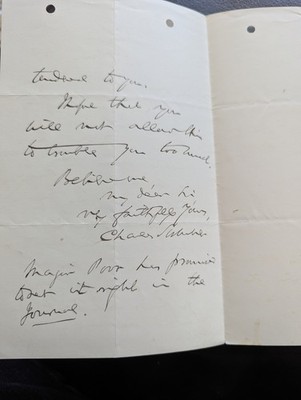 tendered to you.
I hope that you
will not allow this
to trouble you too much.
Believe me
my dear Sir
very faithfully Yours,
Charles
Major Poor has promised
to set it right in the
Journal.